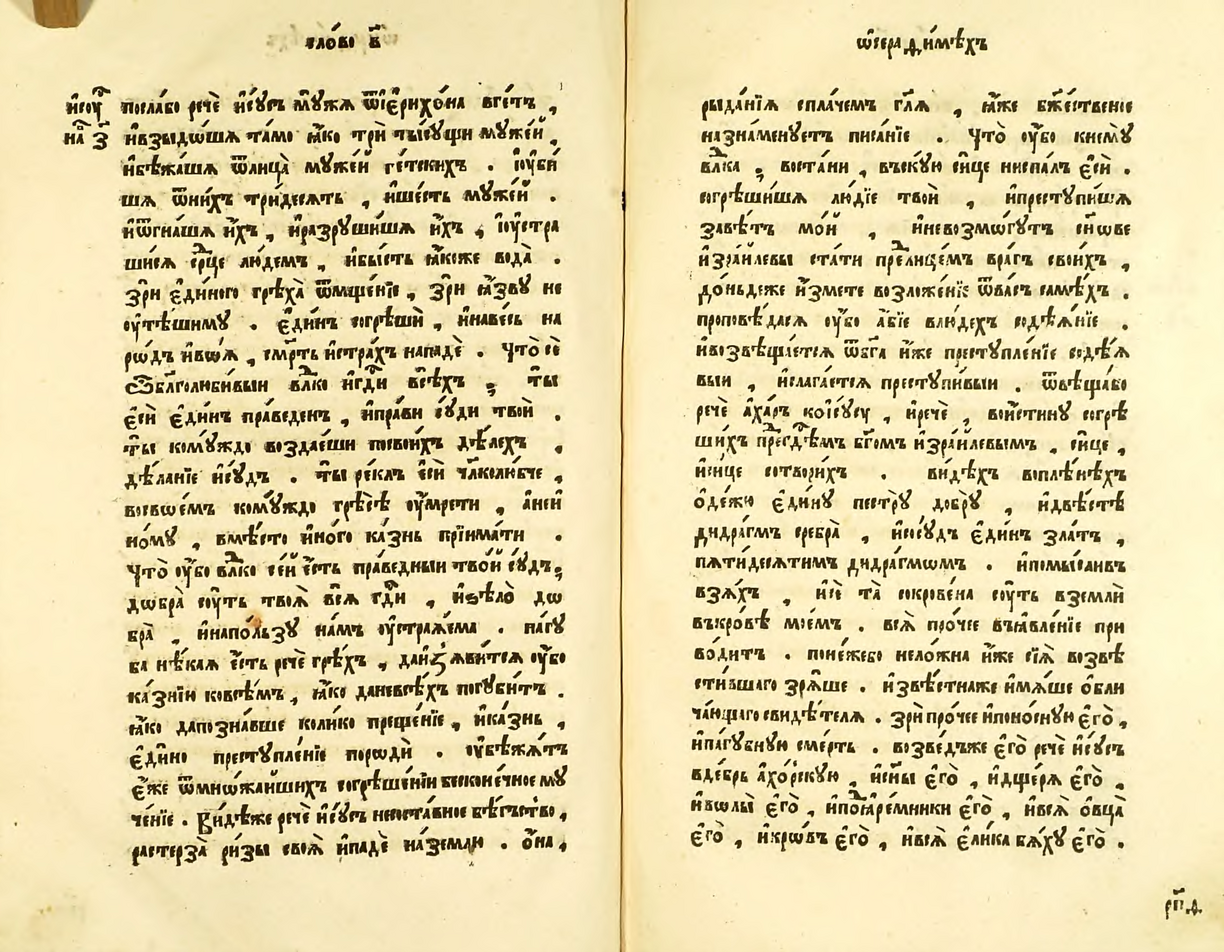 сло́во в҃
ѡ҆серафі́мѣхъ
и҆сꙋ҃
на̀ з҃
посла́бо речѐ і҆исꙋ́съ мꙋ́жѧ ѿі҆ерихо́на вге́тъ ,
и҆взыдо́шѧ та́мо ꙗ҆́ко трѝ ты́сꙋщи мꙋже́й ,
и҆бѣжа́шѧ ѿлица̀ мꙋже́й ге́тскихъ . і҆ꙋби́
шѧ ѿни́хъ три́десѧть , и҆ше́сть мꙋже́й .
и҆ѿгна́шѧ и҆́хъ , и҆разрꙋши́шѧ и҆́хъ , і҆ꙋстра
ши́сѧ се́рце лю́демъ , и҆бы́сть ꙗ҆́коже вода̀ .
зрѝ є҆ди́ного грѣха̀ ѿмще́нїе , зрѝ ꙗ҆́звꙋ не
оу҆тѣ́шимꙋ . є҆ди́нъ согрѣшѝ , и҆наве́сь на
ро́дъ и҆вѡ́ѧ , сме́рть и҆стра́хъ нападѐ . что̀ сѐ
ѽбл҃голюби́выи влⷣко и҆гдⷭ́и всѣ́хъ ; ты̀
є҆сѝ є҆ди́нъ пра́веденъ , и҆пра́ви сꙋди́ твоѝ .
ты̀ комꙋ́ждо воздае́ши посвои́хъ дѣ́лехъ ,
дѣла́нїе и҆сꙋ́дъ . ты̀ ре́клъ є҆сѝ чл҃колю́бче ,
восвое́мъ комꙋ́ждо грѣсѣ̀ оу҆мре́ти , а҆неи
но́мꙋ , вмѣ́сто и҆но́го ка́знь прїима́ти .
что̀ оу҆́бо влⷣко се́й є҆́сть пра́ведныи тво́й сꙋ́дъ ;
дѡбра̀ сꙋ́ть твоѧ̀ всѧ̀ гдⷭ́и , и҆ѕѣлѡ̀ дѡ
бра̀ , и҆напо́льзꙋ на́мъ оу҆стра́ѧема . па́гꙋ
ба нѣ́каѧ є҆́сть речѐ грѣ́хъ , даи҆з̾ѧви́тсѧ оу҆́бо
ка́знїи ковсѣ́мъ , ꙗ҆́ко даневсѣ́хъ погꙋби́тъ .
ꙗ҆́ко дапозна́вше коли́ко преще́нїе , и҆ка́знь ,
є҆ди́но престꙋпле́нїе породѝ . оу҆бѣжа́тъ
є҆́же ѿмно́жайшихъ согрѣше́нїи бесконе́чное мꙋ
че́нїе . ви́дѣже речѐ і҆исꙋ́съ неѡста́вное бѣ́гство ,
растерза̀ ри́зы своѧ̀ и҆падѐ на́землю . ѻ҆на ,
рыда́нїѧ спла́чемъ гл҃ѧ , ꙗ҆́же бж҃е́ственое
назнаменꙋ́етъ писа́нїе . что̀ оу҆́бо кисемꙋ̀
влⷣка ; воста́ни , въскꙋ́ю си́це ниспа́лъ є҆сѝ .
согрѣши́шѧ лю́дїе твоѝ , и҆престꙋпи́шѧ
завѣ́тъ мо́й , и҆невозмо́гꙋтъ сн҃ове
і҆зра́илевы ста́ти пре́лицемъ вра́гъ свои́хъ ,
до́ньдеже и҆́змете возложе́нїе ѿва́съ самѣ́хъ .
проповѣ́дасѧ оу҆́бо а҆́бїе влю́дехъ содѣ́ѧнїе .
и҆возвѣща́етсѧ ѿбг҃а и҆́же престꙋпле́нїе содѣ́ѧ
выи , и҆слага́етсѧ престꙋпи́выи . ѿвѣща́бо
речѐ а҆ха́ръ коі҆исꙋ́сꙋ , и҆речѐ , вои́стинꙋ согрѣ
ши́хъ пре́дгдⷭемъ бг҃омъ і҆зра́илевымъ , си́це ,
и҆си́це сотвори́хъ . ви́дѣхъ воплѣ́нѣхъ
ѻ҆де́жю є҆ди́нꙋ пе́стрꙋ добрꙋ̀ , и҆двѣ́стѣ
дидра́гмъ сребра̀ , и҆сосꙋ́дъ є҆ди́нъ зла́тъ ,
пѧтидесѧ́тимъ дидра́гмомъ . и҆помы́сливъ
взѧ́хъ , и҆сѐ та̀ сокрове́на сꙋ́ть вземлѝ
въкро́вѣ мое́мъ . всѧ̀ про́чее въꙗ҆вле́нїе при
во́дитъ . поне́жебо нело́жна и҆́же сїѧ̀ возвѣ
сти́вшаго зрѧ́ше . и҆звѣ́стнаже и҆мѧ́ше ѻ҆бли
ча́ющаго свидѣ́телѧ . зрѝ про́чее и҆поно́снꙋю є҆го̀ ,
и҆па́гꙋбнꙋю сме́рть . возведѣ́же є҆го̀ речѐ і҆исꙋ́съ
вде́брь а҆хо́рскꙋю , и҆сн҃ы є҆го̀ , и҆дще́рѧ є҆го̀ ,
и҆волы̀ є҆го̀ , и҆под̾ꙗре́мники є҆го̀ , и҆всѧ̀ ѻ҆вца̀
є҆го̀ , и҆кро́въ є҆го̀ , и҆всѧ̀ є҆ли́ка бѧ́хꙋ є҆го̀ .
рп҃д